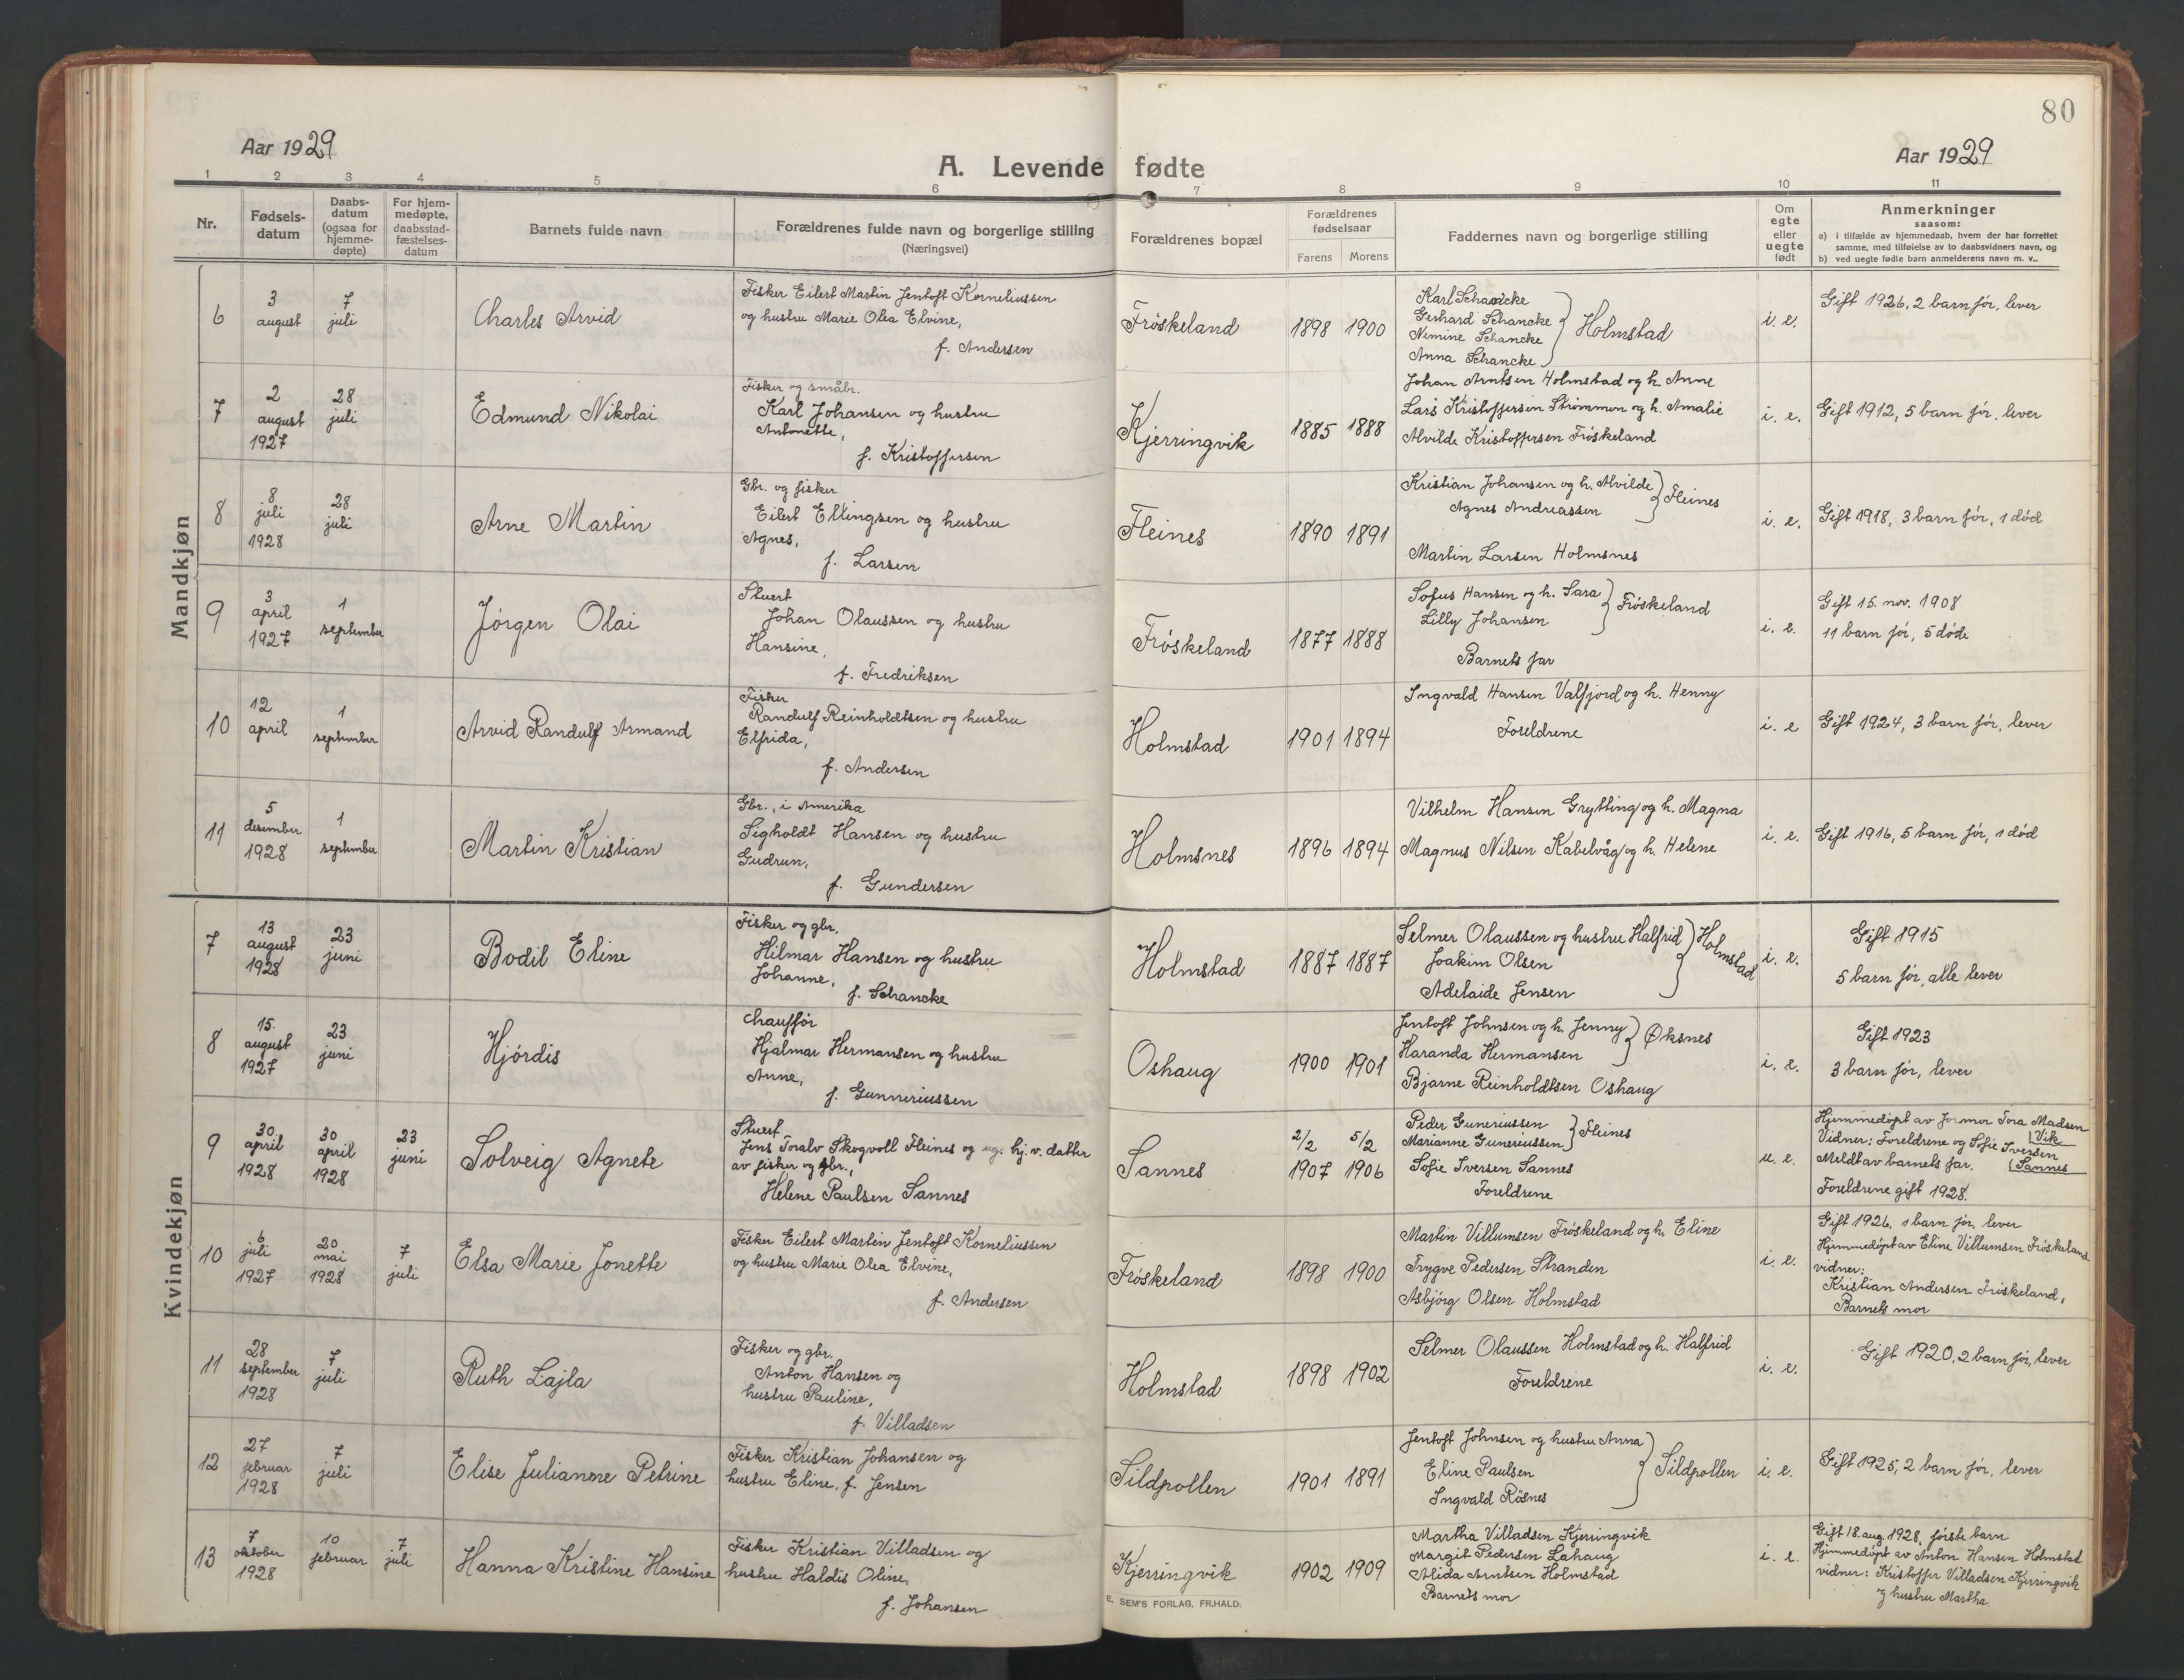 80
Aar 1929
A. Levende fødte
Aar 1929
1 2 3 4 5 6 7 8 9 10 11
Nr.
Fødsels-
datum
Daabs-
datum
(ogsaa for
hjemme-
døpte)
For hjem-
medøpte,
daabsstad-
fæstelses-
datum
Barnets fulde navn
Forældrenes fulde navn og borgerlige stilling
(Næringsvei)
Forældrenes bopæl
Forældrenes
fødselsaar
Farens Morens
Faddernes navn og borgerlige stilling
Om
egte
eller
uegte
født
Anmerkninger
saasom:
a) i tilfælde av hjemmedaab, hvem der har forrettet
samme, med tilføielse av to daabsvidners navn, og
b) ved uegte fødte barn anmelderens navn m. v..
Mandkjøn
6
3
august
7
juli
Charles Arvid
Fisker Eilert Martin Jentoft Korneliussen
og hustru Marie Olea Elvine,
f. Andersen
Frøskeland
1898 1900
Karl Schancke
Gerhard Schancke
Nimine Schancke
Anna Schancke
Holmstad
i. e.
Gift 1926, 2 barn før, lever
7
2
august
1927
28
juli
Edmund Nikolai
Fisker og småbr.
Karl Johansen og hustru
Antonette,
f. Kristoffersen
Kjerringvik
1885 1888
Johan Arntsen Holmstad og h. Anne
Lars Kristoffersen Strømmen og h. Amalie
Alvilde Kristoffersen Frøskeland
i. e.
Gift 1912, 5 barn før, lever
8
8
juli
1928
28
juli
Arne Martin
Gbr. og fisker
Eilert Ellingsen og hustru
Agnes,
f. Larsen
Fleines
1890 1891
Kristian Johansen og h. Alvilde
Agnes Andreassen
Fleines
Martin Larsen Holmsnes
i. e.
Gift 1918, 3 barn før, 1 død
9
3
april
1927
1
september
Jørgen Olai
Stuert
Johan Olaussen og hustru
Hansine,
f. Fredriksen
Frøskeland
1877 1888
Sofus Hansen og h. Sara
Lilly Johansen
Frøskeland
Barnets far
i. e.
Gift 15. nov. 1908
11 barn før, 5 døde
10
12
april
1
september
Arvid Randulf Armand
Fisker
Randulf Reinholdtsen og hustru
Elfrida,
f. Andersen
Holmstad
1901 1894
Ingvald Hansen Valfjord og h. Henny
Foreldrene
i. e
Gift 1924, 3 barn før, lever
11
5
desember
1928
1
september
Martin Kristian
Gbr., i Amerika
Sigholdt Hansen og hustru
Gudrun,
f. Gundersen
Holmsnes
1896 1894
Vilhelm Hansen Grytting og h. Magna
Magnus Nilsen Kabelvåg og h. Helene
i. e.
Gift 1916, 5 barn før, 1 død
Kvindekjøn
7
13
august
1928
23
juni
Bodil Eline
Fisker og gbr.
Hilmar Hansen og hustru
Johanne,
f. Schancke
Holmstad
1887 1887
Selmer Olaussen og hustru Halfrid
Joakim Olsen
Adelaide Jensen
Holmstad
i. e.
Gift 1915
5 barn før, alle lever
8
15.
august
1927
23
juni
Hjørdis
Chauffør
Hjalmar Hermansen og hustru
Anne,
f. Gunneriussen
Oshaug
1900 1901
Jentoft Johnsen og h. Jenny
Haranda Hermansen
Øksnes
Bjarne Reinholdtsen Oshaug
i. e.
Gift 1923
3 barn før, lever
9
30.
april
1928
30
april
1928
23
juni
Solveig Agnete
Stuert
Jens Toralv Skogvoll Fleines og ug. hj. v. datter
av fisker og gbr.,
Helene Paulsen Sannes
Sannes
2/2
1907
5/2
1906
Peder Guneriussen
Marianne Guneriussen
Fleines
Sofie Iversen Sannes
Foreldrene
u. e.
Hjemmedøpt av formor Tora Madsen
Vik
Vidner: Foreldrene og Sofie Iversen
Sannes
Meldt av barnets far.
Foreldrene gift 1928.
10
6
juli
1927
20
mai
1928
7
juli
Elsa Marie Jonette
Fisker Eilert Martin Jentoft Korneliussen
og hustru Marie Olea Elvine,
f. Andersen
Frøskeland
1898 1900
Martin Villumsen Frøskeland og h. Eline
Trygve Pedersen Stranden
Asbjørg Olsen Holmstad
i. e.
Gift 1926, 1 barn før, lever
Hjemmedøpt av Eline Villumsen Frøskeland
vidner:
Kristian Andersen Frøskeland,
Barnets mor
11
28
september
1928
7
juli
Ruth Lajla
Fisker og gbr.
Anton Hansen og
hustru Pauline,
f. Villadsen
Holmstad
1898 1902
Selmer Olaussen Holmstad og h. Halfrid
Foreldrene
i. e.
Gift 1920, 2 barn før, lever
12
27
februar
1928
7
juli
Elise Julianne Petrine
Fisker Kristian Johansen og
hustru Eline, f. Jensen
Sildpollen
1901 1891
Jentoft Johnsen og hustru Anna
Eline Paulsen
Ingvald Røsnes
Sildpollen
i. e.
Gift 1925, 2 barn før, lever
13
7
oktober
1928
10
februar
7
juli
Hanna Kristine Hansine
Fisker Kristian Villadsen og
hustru Haldis Oline,
f. Johansen
Kjerringvik
1902 1909
Martha Villadsen Kjerringvik
Margit Pedersen Lahaug
Alida Arntsen Holmstad
Barnets mor
i. e.
Gift 18. aug. 1928, første barn
Hjemmedøpt av Anton Hansen Holmstad
vidner: Kristoffer Villadsen Kjerringvik
og hustru Martha.
E. SEM'S FORLAG, FR.HALD.